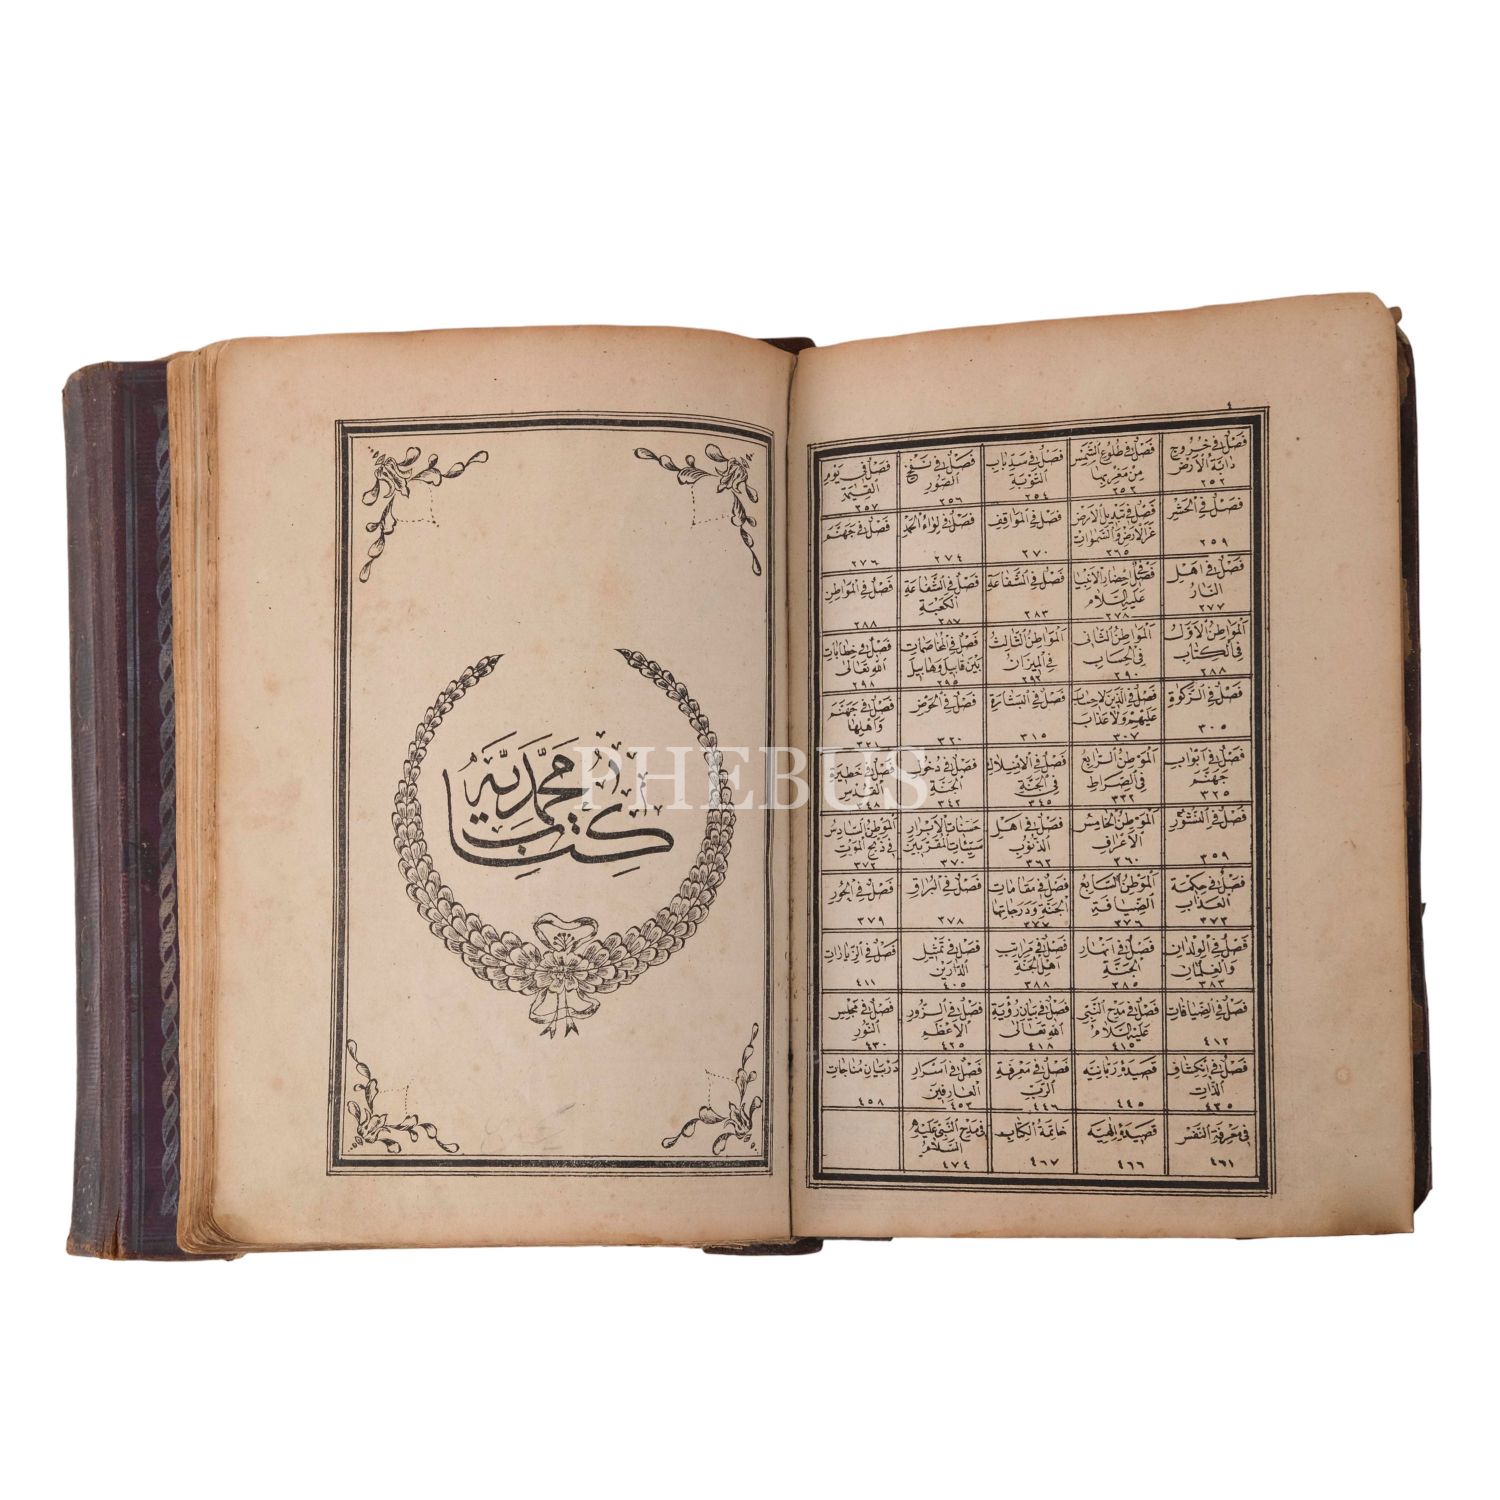 كتاب محمدية
PHEBUS
٤
فصل في خروج دابة الارض ٢٥٢
فصل في طلوع الشمس من مغربها ٢٥٣
فصل في سد باب التوبة ٢٥٤
فصل في نفخ الصور ٢٥٦
فصل في يوم القيمة ٢٥٧
فصل في الحشر ٢٥٩
فصل في تبديل الارض غير الارض والسموات ٢٦٥
فصل في المواقف ٢٧٠
فصل في لواء الحمد ٢٧٤
فصل في جهنم ٢٧٦
فصل في اهل النار ٢٧٧
فصل في احضار الانبيا عليه السلام ٢٧٨
فصل في الشفاعة ٢٨٣
فصل في الشفاعة الكعبة ٢٨٧
فصل في المواطن ٢٨٨
المواطن الاول في الكتاب ٢٨٨
المواطن الثانى في الحساب ٢٩٠
المواطن الثالث في الميزان ٢٩٢
فصل في المخاصمات بين قابيل وهابيل ٢٩٥
فصل في خطابات الله تعالى ٢٩٨
فصل في الزكوة ٣٠٥
فصل في الذين لاحساب عليهم ولاعذاب ٣٠٧
فصل في البشارة ٣١٥
فصل في الحوض ٣٢٠
فصل في جهنم واهلها ٣٢١
فصل في ابواب جهنم ٣٢٥
الموطن الرابع في الصراط ٣٣٢
فصل في الجنة ٣٤٥
فصل في دخول الجنة ٣٤٢
فصل في حظيرة القدس ٣٤٨
فصل في النشور ٣٥٩
الموطن الخامس الاعراف ٣٦٠
فصل في اهل الذنوب ٣٦٢
حسنات الابرار سيئات المقربين ٣٧٠
الموطن السادس في ذبح الموت ٣٧٢
فصل في حكمة العذاب ٣٧٣
الموطن السابع الضيافة ٣٧٦
فصل في مقامات الجنة ودرجاتها ٣٧٧
فصل في البراق ٣٧٨
فصل في الحور ٣٧٩
فصل في الولدان والغلمان ٣٨٣
فصل في انهار الجنة ٣٨٥
فصل في مراتب اهل الجنة ٣٨٨
فصل في تمثيل الدارين ٤٠٥
فصل في الزيارات ٤١١
فصل في الضيافات ٤١٢
فصل في مدح النبي عليه السلام ٤١٥
فصل في بيان رؤية الله تعالى ٤١٨
فصل في الزور الاعظم ٤٢٥
فصل في مجلس النور ٤٣٠
فصل في انكشاف الذات ٤٣٥
قصيدهٔ ربانيه ٤٤٥
فصل في معرفة الرب ٤٤٦
فصل في اسرار العارفين ٤٥٣
در بيان مناجات ٤٥٨
في معرفة النفس ٤٦١
قصيدهٔ الهيه ٤٦٦
خاتمة الكتاب ٤٦٧
في مدح النبي عليه السلام ٤٧٤